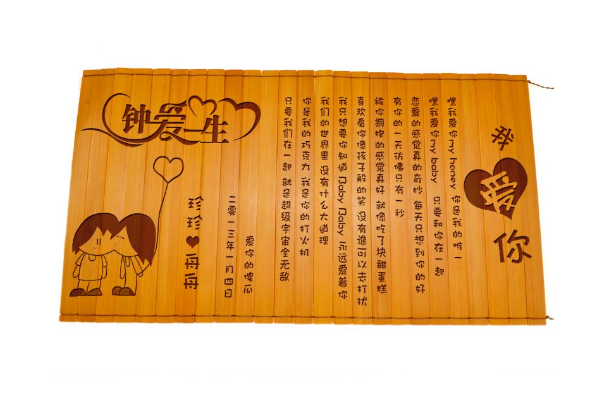 我爱你
嘿我爱你my honey 你是我的唯一
嘿我爱你my baby 只要和你在一起
恋爱的感觉真的奇妙 每天只想到你的好
有你的一天彷佛只有一秒
被你拥抱的感觉真好 就像吃了块甜蛋糕
喜欢看你像孩子般的笑 没有谁可以去打扰
我只想要你知道 Baby Baby 永远爱着你
我们的世界里 没有什么大道理
你是我的巧克力 我是你的打火机
只要我们在一起 就是超级宇宙全无敌
钟爱一生
爱你的傻瓜
二零一三年一月四日
珍珍♥舟舟